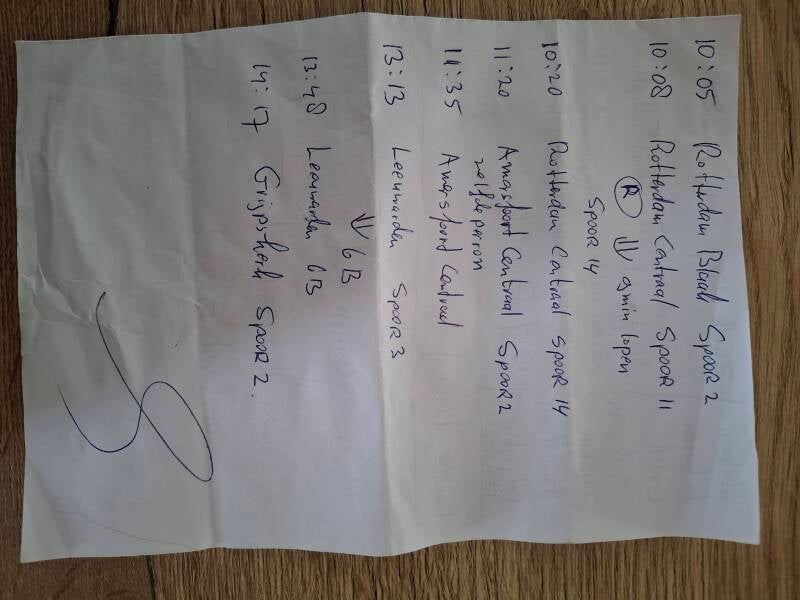 10:05 Rotterdam Blaak Spoor 2
10:08 Rotterdam Centraal Spoor 11
R ⇓ 9 min lopen
Spoor 14
10:20 Rotterdam Centraal Spoor 14
11:20 Amersfoort Centraal Spoor 2
zelfde perron
11:35 Amersfoort Centraal
13:13 Leeuwarden Spoor 3
⇓ 6B
13:48 Leeuwarden 6B
14:17 Grijpskerk Spoor 2.